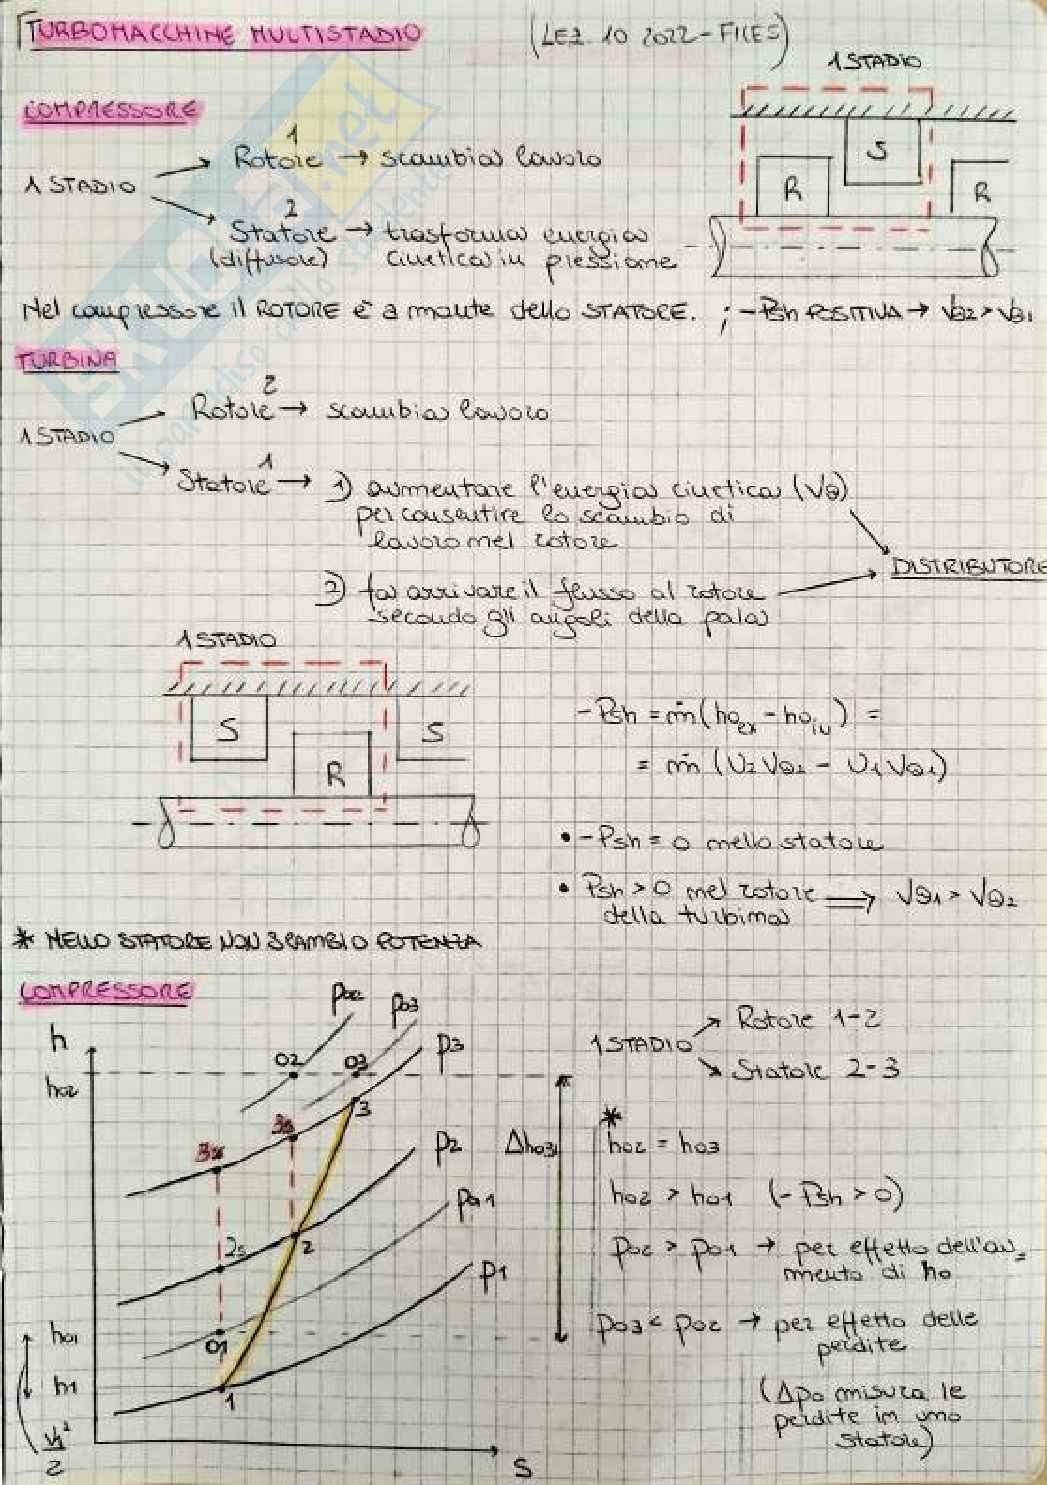 TURBOMACCHINE MULTISTADIO (LEZ. 10 2022 - FILES)
COMPRESSORE
1 STADIO
1
Rotore → scambia lavoro
1 STADIO
2
Statore → trasforma energia
(diffusore) cinetica in pressione
S
R
R
Nel compressore il ROTORE è a monte dello STATORE. ; -Psh POSITIVA → Vθ2 > Vθ1
TURBINA
2
Rotore → scambia lavoro
1 STADIO
1
Statore → 1) aumentare l'energia cinetica (Vθ)
per consentire lo scambio di
lavoro nel rotore
DISTRIBUTORE
2) far arrivare il flusso al rotore
secondo gli angoli della pala
1 STADIO
S
S
R
-Psh = ṁ(h0ex - h0in) =
= ṁ (U2Vθ2 - U1Vθ1)
• -Psh = 0 nello statore
• Psh > 0 nel rotore ⟹ Vθ1 > Vθ2
della turbina
* NELLO STATORE NON SCAMBIO POTENZA
COMPRESSORE
h
h02
p02
p03
p3
02
03
3
3s
3ss
p2
Δh03
p01
2s
2
p1
h01
01
h1
1
V1²
2
s
1 STADIO
Rotore 1-2
Statore 2-3
*
h02 = h03
h02 > h01 (-Psh > 0)
p02 > p01 → per effetto dell'au=
mento di h0
p03 < p02 → per effetto delle
perdite
(Δp0 misura le
perdite in uno
statore)
SKUOLA.net